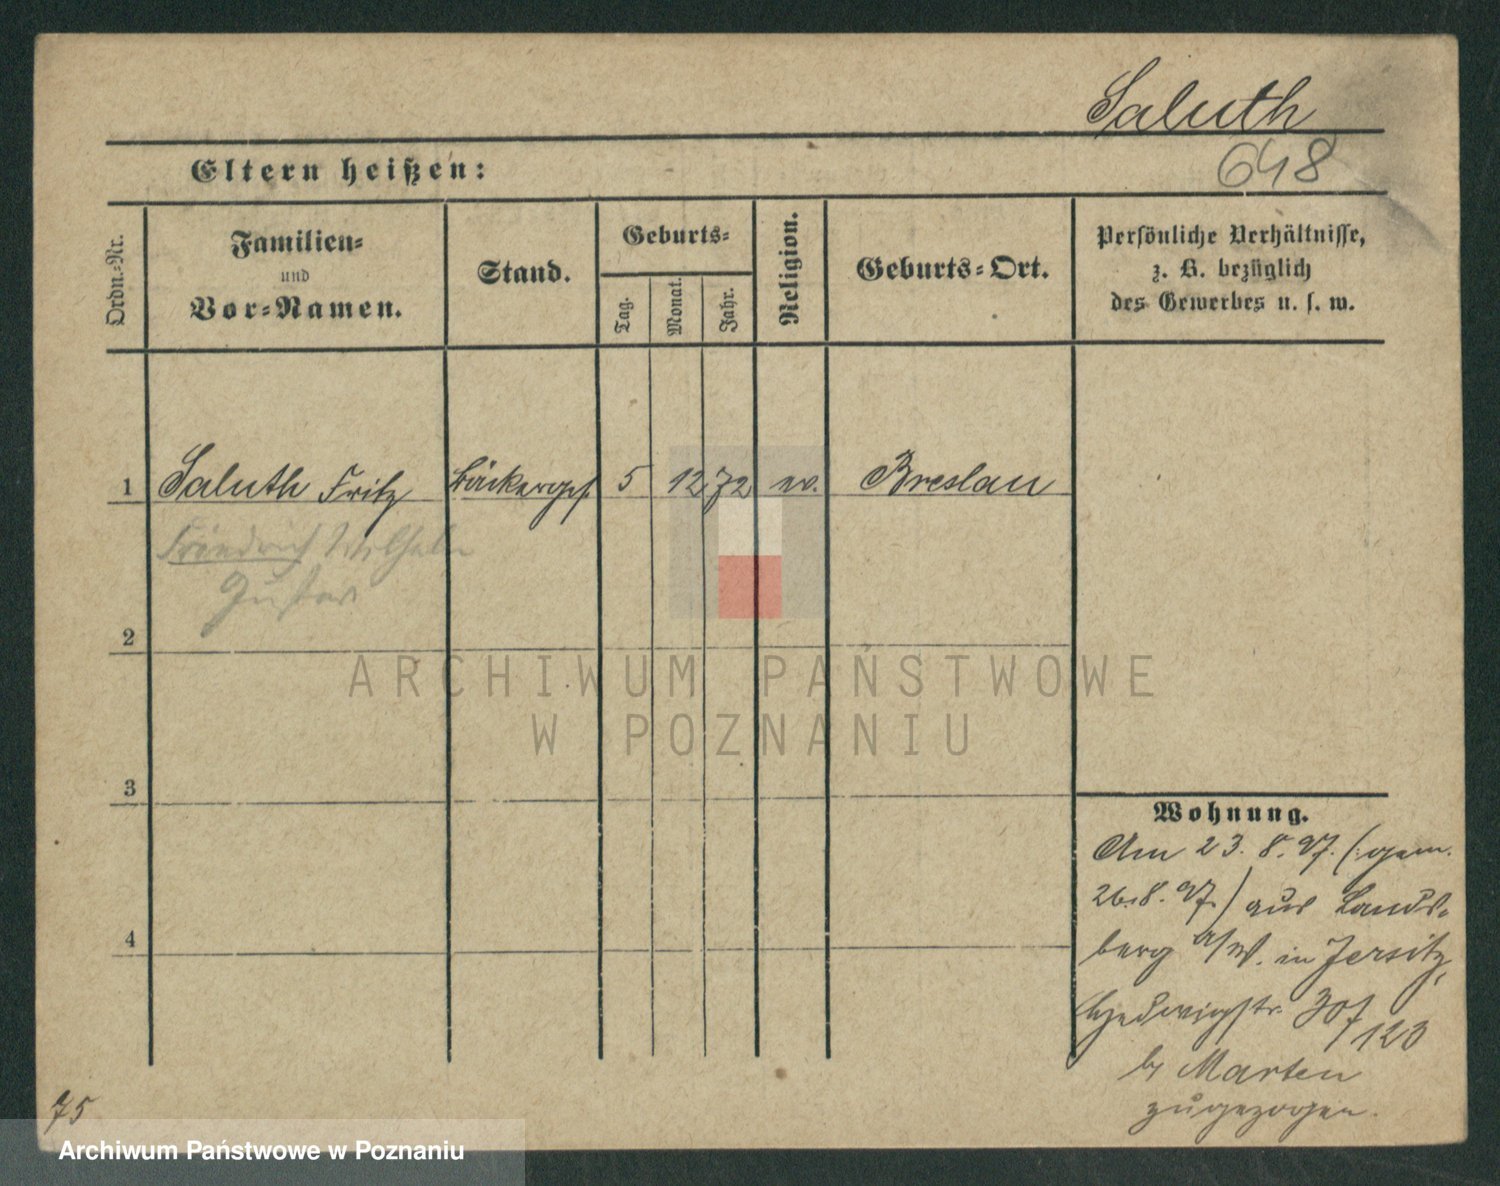 Saluth
648
Eltern heißen:
Ordn.-Nr.
Familien-
und
Vor-Namen.
Stand.
Geburts-
Tag.
Monat.
Jahr.
Religion.
Geburts-Ort.
Persönliche Verhältnisse,
z. B. bezüglich
des Gewerbes u. s. w.
1 Saluth Fritz Bäckerges. 5 12 72 ev. Breslau
Friedrich Wilhelm
Gustav
2
ARCHIWUM PAŃSTWOWE
W POZNANIU
3
Wohnung.
Am 23. 8. 97. (:gem.
26.8.97.) aus Lands-
4
berg a/W. in Jersitz,
Hedwigstr.
/123
b/ Marten
zugezogen.
75
Archiwum Państwowe w Poznaniu